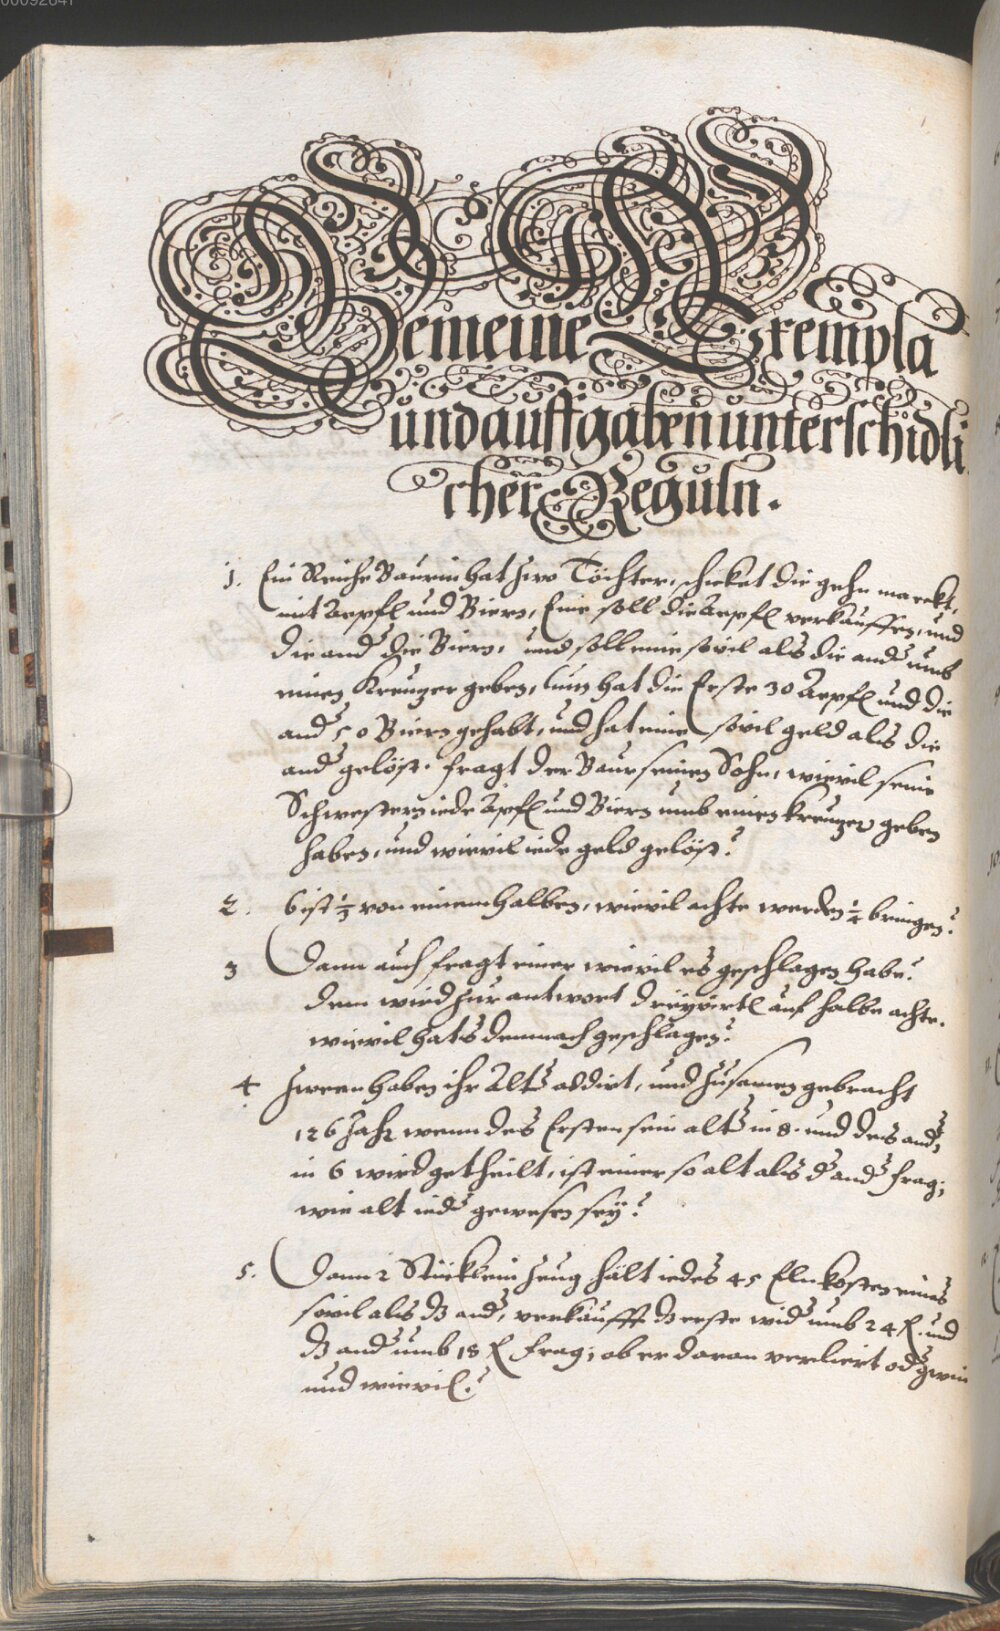 00092847
Gemeine Exempla
und auffgaben unterschidli
cher Reguln.
1. Ein Reiche Baurin hat zwo Töchter, schicket die gehn marckt,
mit Aepfl und Biern, Eine soll die Aepfl verkauffen, und
die and die Biern, und soll eine sovil als die and umb
einen Kreuzer geben, nun hat die Erste 30 Aepfl und die
and 50 Biern gehabt, und hat eine sovil geld als die
and gelöst. fragt der Baur seinen Sohn, wievil seine
Schwestern iede Äpfl und Biern umb einen kreuzer geben
haben, und wievil iede geld gelöst?
2. 6 ist ⅓ von einem halben, wievil achte werden ¼ bringen?
3 Dann auch fragt einer wievil es geschlagen habe?
dem wird zur antwort dreyvirtl auf halbe achte.
wievil hats demnach geschlagen?
4 Zween haben ihr Alt addirt, und zusamen gebracht
126 Jahr wenn des Ersten sein alt in 8. und des and,
in 6 wird getheilt, ist einer so alt als d and frag;
wie alt ied gewesen sey?
5. Dann 2 Stücklein zeug hält iedes 45 Eln kosten eines
sovil als dz and, verkaufft dz erste wid umb 24 fl. und
dz and umb 18 fl frag; ob er daran verliert od gwin
und wievil?